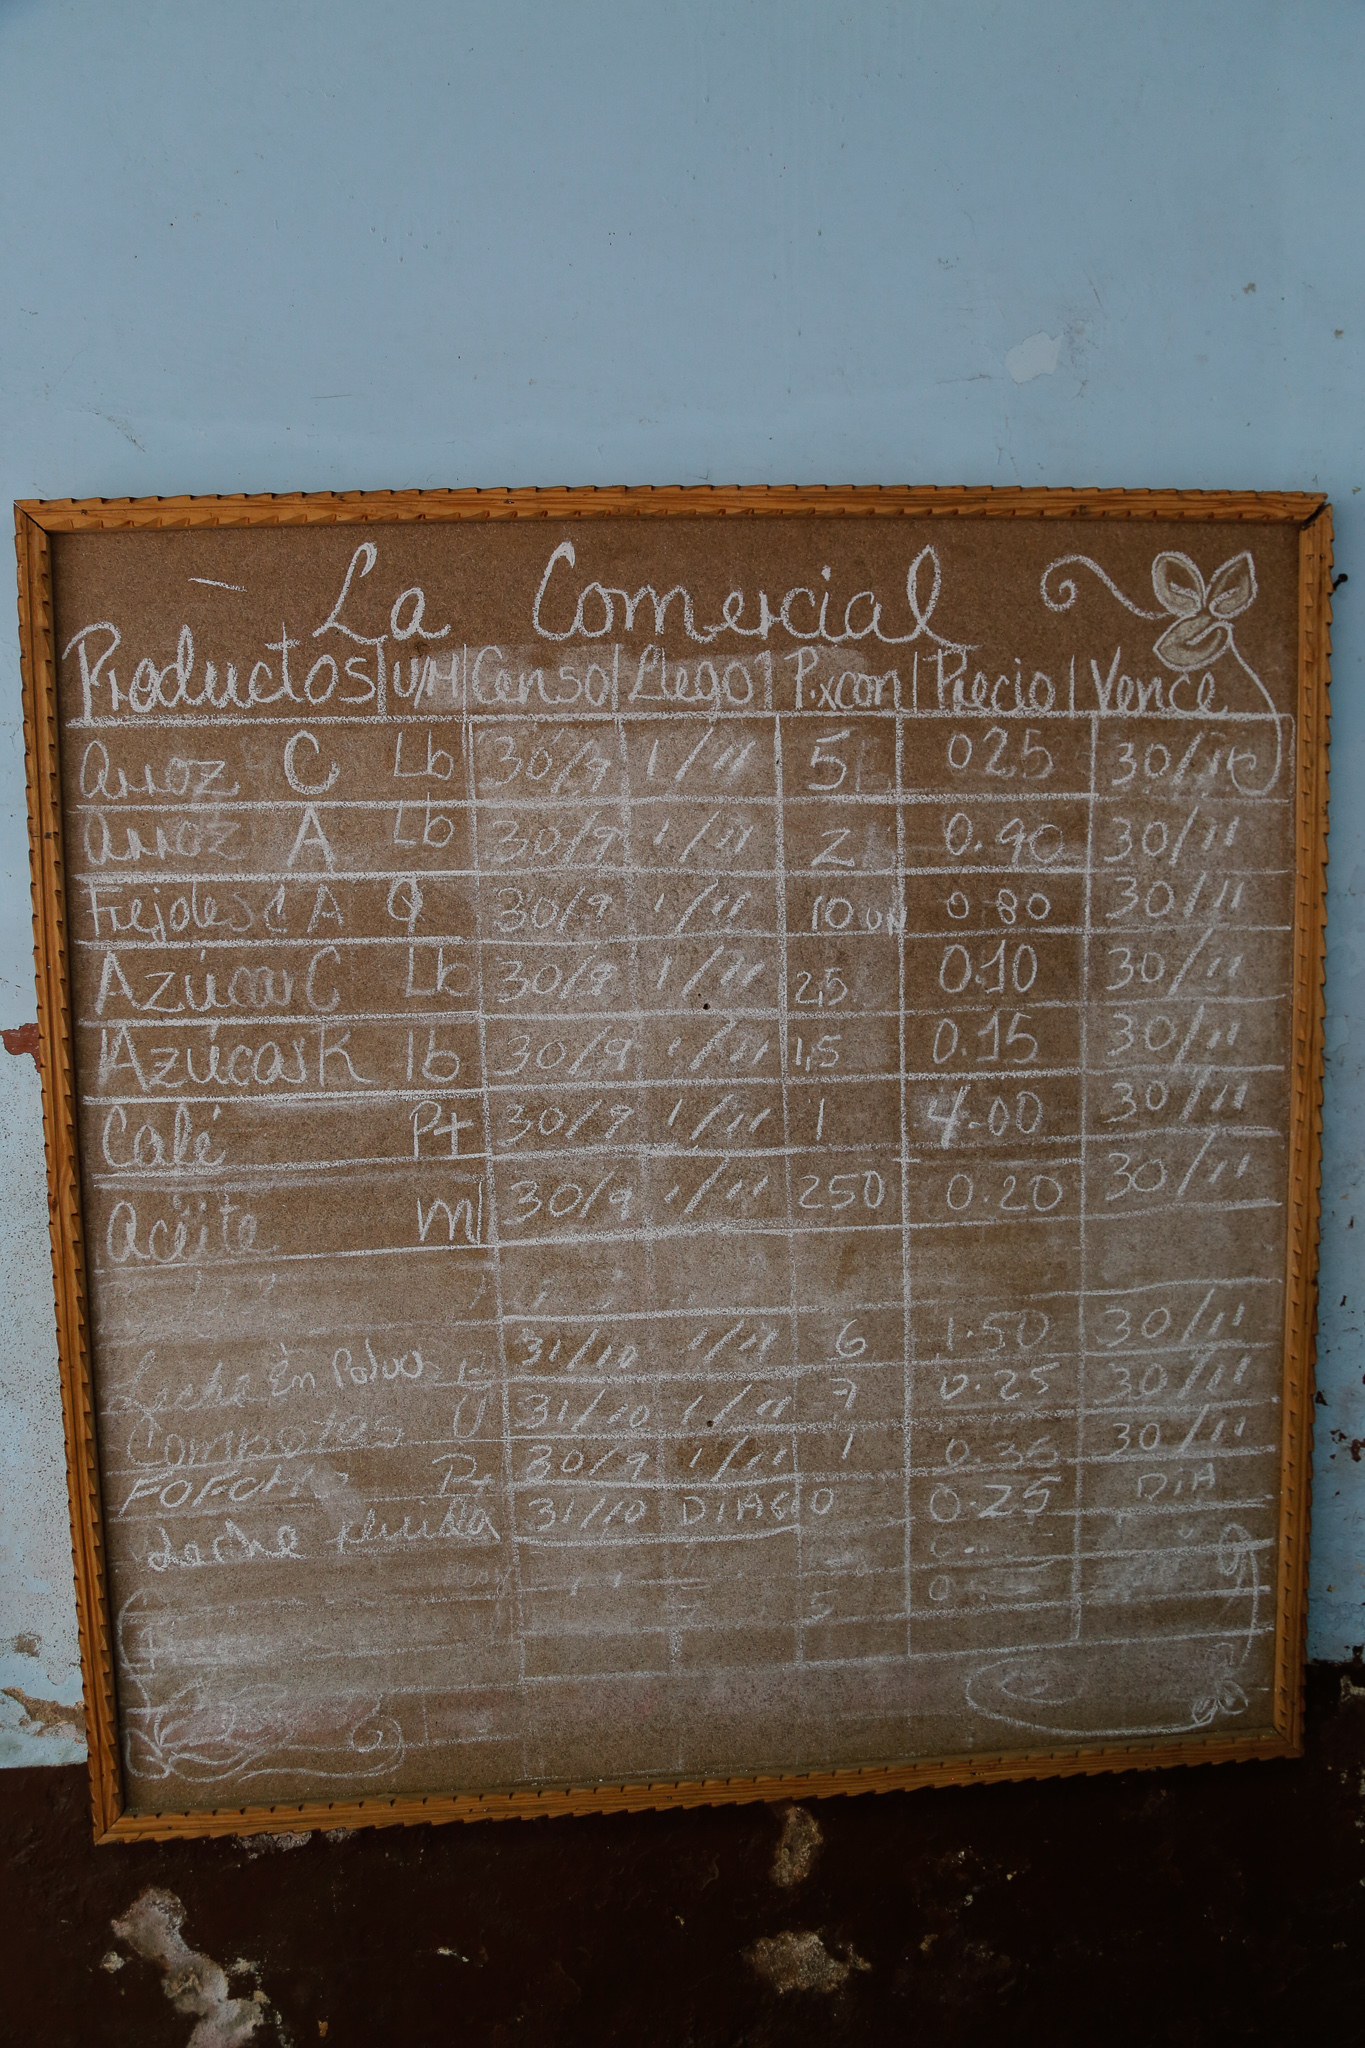 La Comercial
Productos U/M Censo Llego P.xcon Precio Vence
Arroz C Lb 30/9 1/11 5 025 30/11
Arroz A Lb 30/9 1/11 2 0.90 30/11
Frejoles C A 30/9 1/11 10 0.80 30/11
Azúcar C Lb 30/9 1/11 2,5 0.10 30/11
Azúcar K lb 30/9 1/11 1,5 0.15 30/11
Café Pt 30/9 1/11 1 4.00 30/11
Aceite Ml 30/9 1/11 250 0.20 30/11
Leche En Polvo 31/10 1/11 6 1.50 30/11
Compotas U 31/10 1/11 7 0.25 30/11
Pt 30/9 1/11 1 30/11
Leche 31/10 0 0.25 DIA